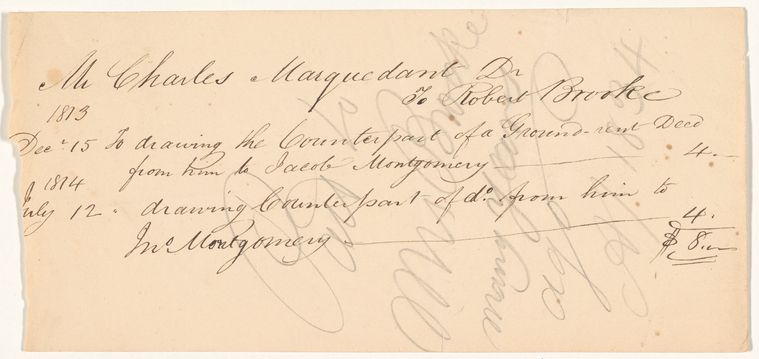 Mr Charles Marquedant Dr
To Robert Brooke
1813
Decr 15 To drawing the Counterpart of a Ground-rent Deed
from him to Jacob Montgomery 4.
1814
July 12 " drawing Counterpart of do from him to
Jno Montgomery 4.
$ 8.